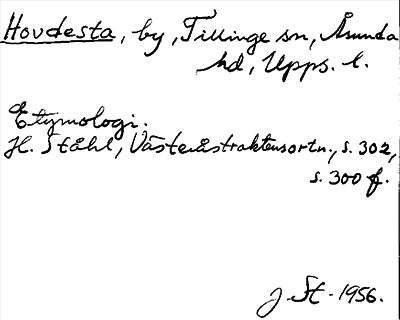 Hovdesta, by, Tillinge sn, Åsunda
hd, Upps. l.
Etymologi.
H. Ståhl, Västeråstraktensortn., s. 302,
s. 300 f.
J. St. 1956.